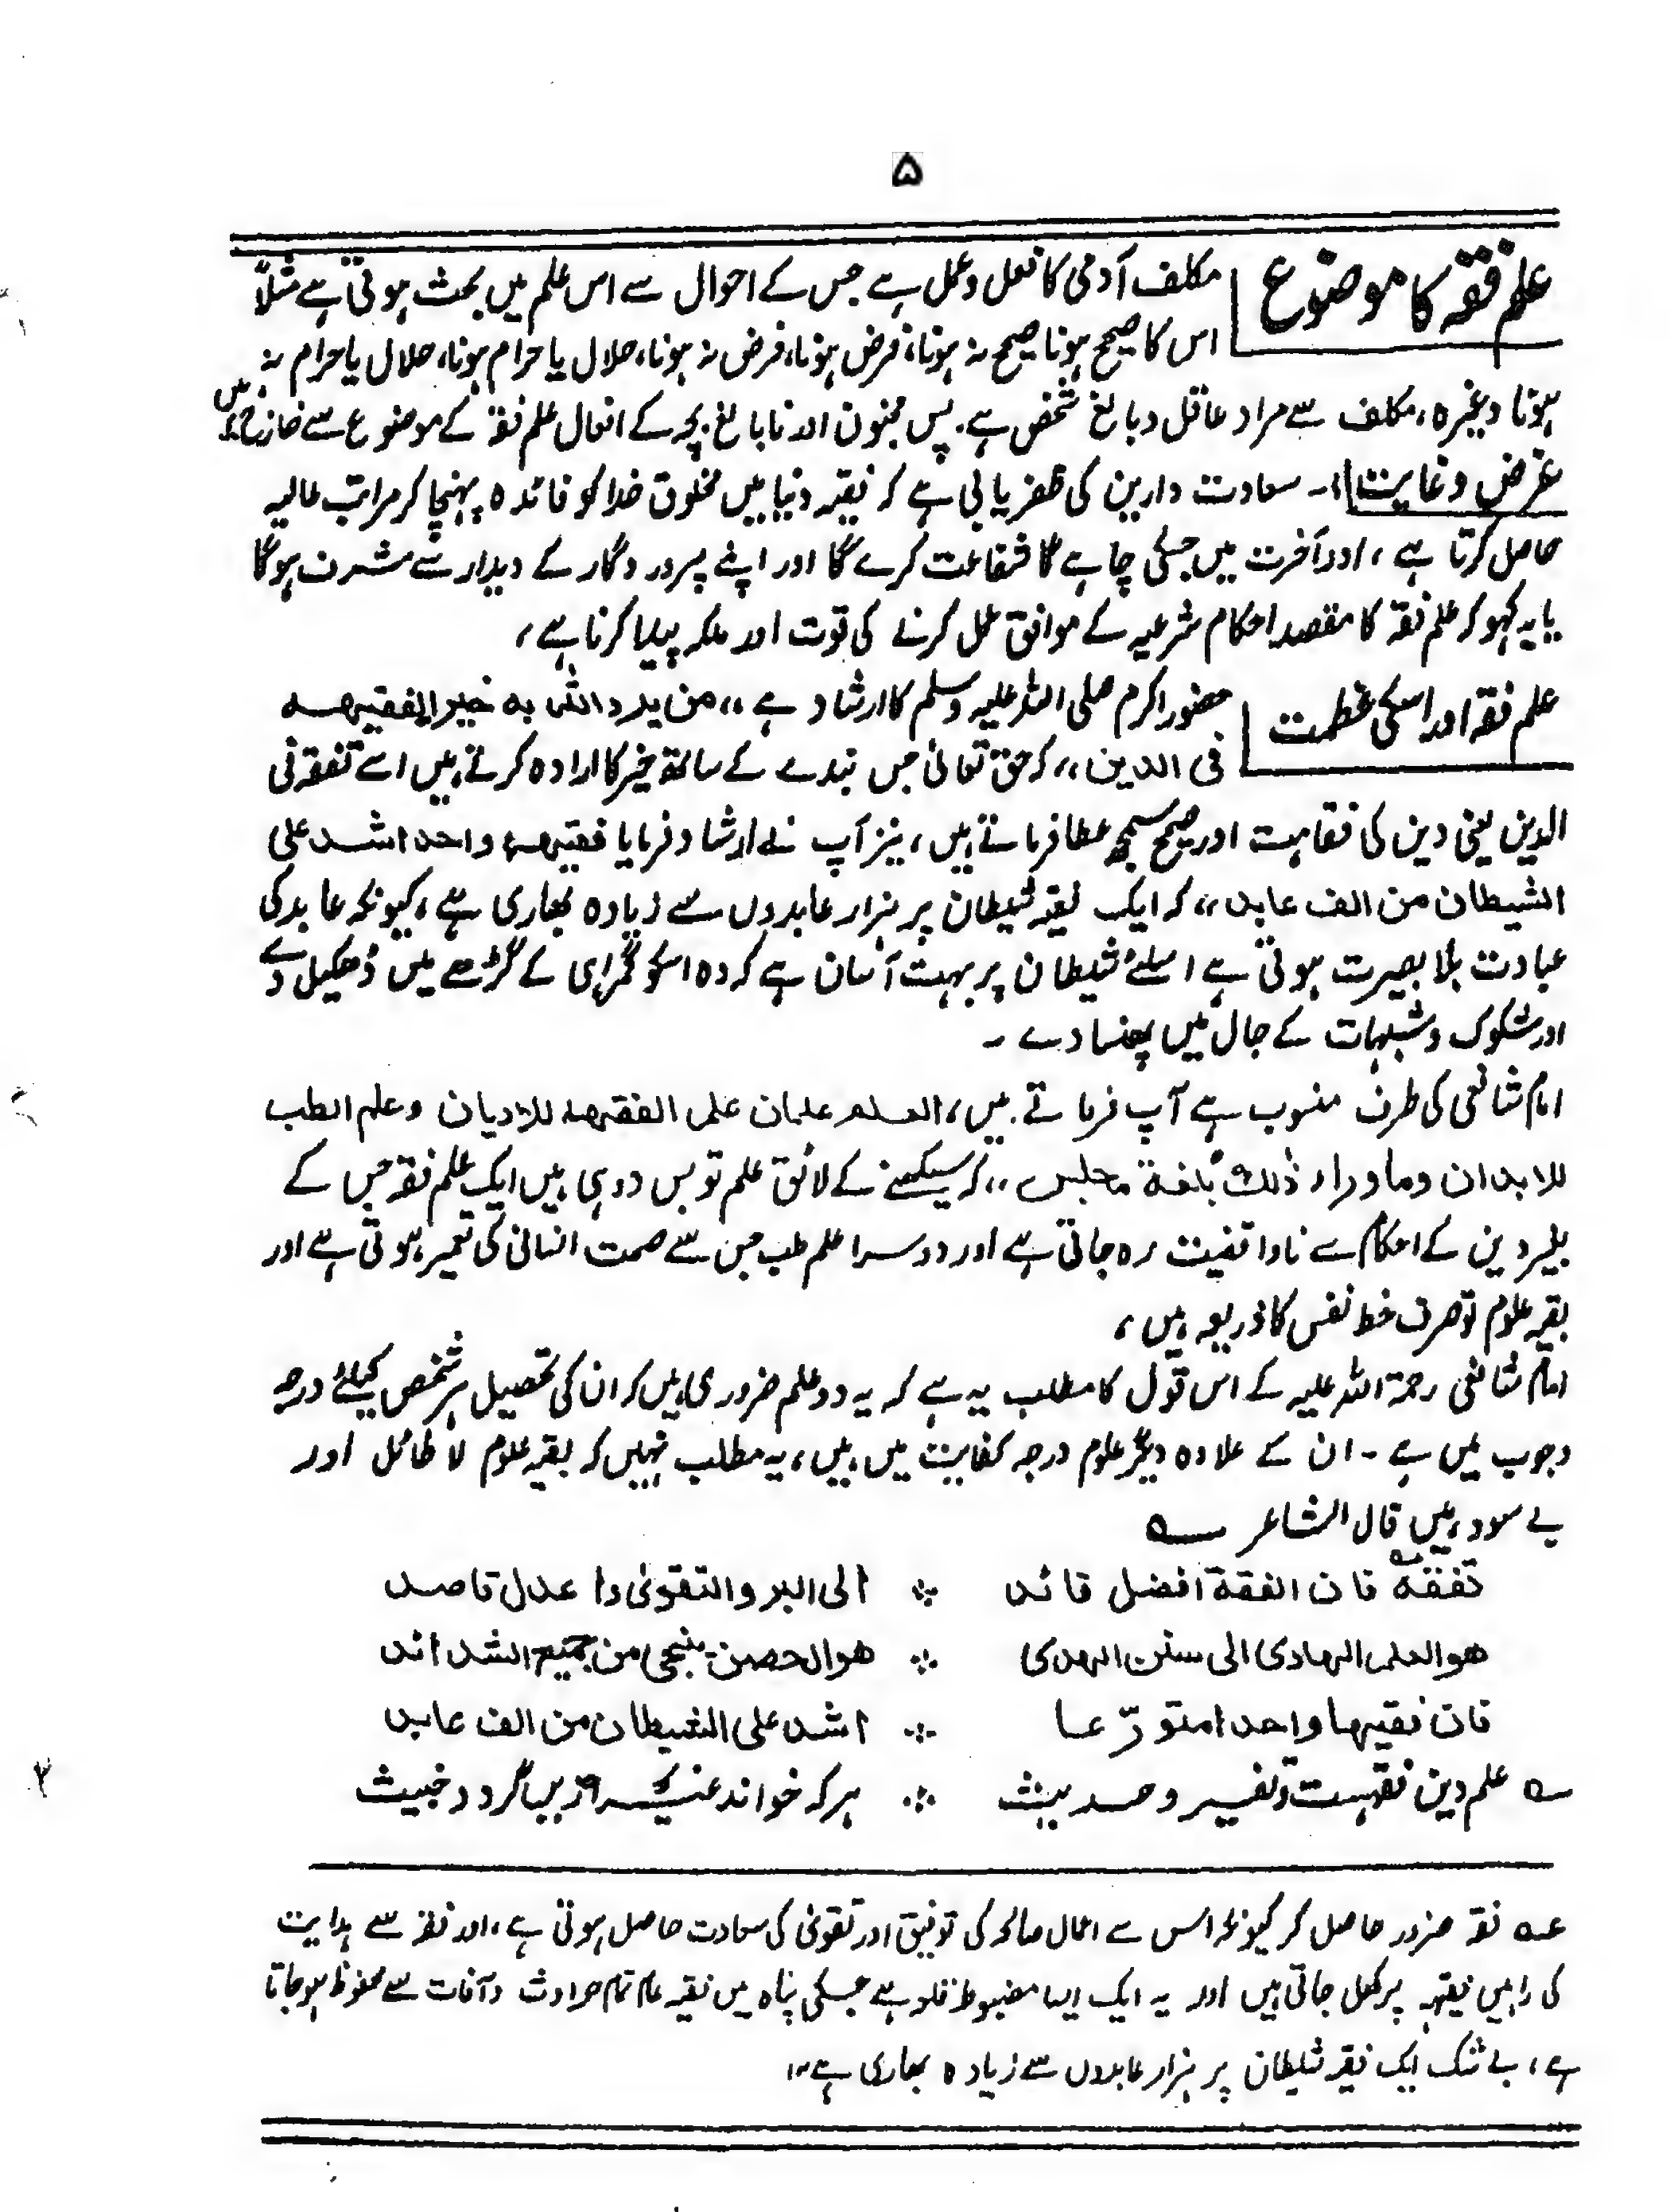 ۵
علم فقہ کا موضوع
مکلف آدمی کا فعل وعمل ہے جس کے احوال سے اس علم میں بحث ہوتی ہے مثلاً
اس کا صحیح ہونا صحیح نہ ہونا، فرض ہونا، فرض نہ ہونا، حلال یا حرام ہونا، حلال یا حرام نہ
ہونا وغیرہ، مکلف سے مراد عاقل وبالغ شخص ہے. پس مجنون اور نابالغ بچہ کے افعال علم فقہ کے موضوع سے خارج ہیں
غرض وغایت :۔ سعادت دارین کی ظفریابی ہے کہ فقیہ دنیا میں مخلوق خدا کو فائدہ پہنچا کر مراتب عالیہ
حاصل کرتا ہے، اور آخرت میں جسکی چاہے گا شفاعت کرے گا اور اپنے پروردگار کے دیدار سے مشرف ہوگا
یا یہ کہو کہ علم فقہ کا مقصد احکام شرعیہ کے موافق عمل کرنے کی قوت اور ملکہ پیدا کرنا ہے،
علم فقہ اور اسکی عظمت
حضور اکرم صلی اللہ علیہ وسلم کا ارشاد ہے ،،من یرد اللہ بہ خیرا یفقیہہ
فی الدین،، کہ حق تعالیٰ جس بندے کے ساتھ خیر کا ارادہ کرتے ہیں اسے تفقہ فی
الدین یعنی دین کی فقاہت اور صحیح سمجھ عطا فرماتے ہیں، نیز آپ نے ارشاد فرمایا فقیہہ واحد اشد علی
الشیطان من الف عابد،، کہ ایک فقیہ شیطان پر ہزار عابدوں سے زیادہ بھاری ہے، کیونکہ عابد کی
عبادت بلا بصیرت ہوتی ہے اسلئے شیطان پر بہت آسان ہے کہ وہ اسکو گمراہی کے گڑھے میں ڈھکیل دے
اور شکوک وشبہات کے جال میں پھنسا دے ۔
امام شافعی کی طرف منسوب ہے آپ فرماتے ہیں، العلم علمان علم الفقہہ للادیان وعلم الطب
للابدان وما وراء ذٰلک بلغۃ مجلس،، کہ سیکھنے کے لائق علم تو بس دو ہی ہیں ایک علم فقہ جس کے
بغیر دین کے احکام سے ناواقفیت رہ جاتی ہے اور دوسرا علم طب جس سے صحت انسانی کی تعمیر ہوتی ہے اور
بقیہ علوم تو صرف حظ نفس کا ذریعہ ہیں،
امام شافعی رحمۃ اللہ علیہ کے اس قول کا مطلب یہ ہے کہ یہ دو علم ضروری ہیں کہ ان کی تحصیل ہر شخص کیلئے درجہ
وجوب میں ہے ۔ ان کے علاوہ دیگر علوم درجہ کفایت میں ہیں، یہ مطلب نہیں کہ بقیہ علوم لا طائل اور
بے سود ہیں قال الشاعر ؎
تفقہ فان الفقۃ افضل قائد ؞ الی البر والتقویٰ واعدل قاصد
ھو العلم الہادی الی سنن الہدی ؞ ھو الحصن ینجی من جمیع الشدائد
فان فقیہا واحدا متورّعا ؞ اشد علی الشیطان من الف عابد
؎ علم دین فقہست وتفسیر وحدیث ؞ ہر کہ خواند غیر ازیں گردد خبیث
عہ فقہ ضرور حاصل کر کیونکہ اس سے اعمال صالحہ کی توفیق اور تقویٰ کی سعادت حاصل ہوتی ہے، اور فقہ سے ہدایت
کی راہیں فقیہہ پر کھل جاتی ہیں اور یہ ایک ایسا مضبوط قلعہ ہے جسکی پناہ میں فقیہ عام تمام حوادث وآفات سے محفوظ ہو جاتا
ہے، بے شک ایک فقیہ شیطان پر ہزار عابدوں سے زیادہ بھاری ہے۱۲